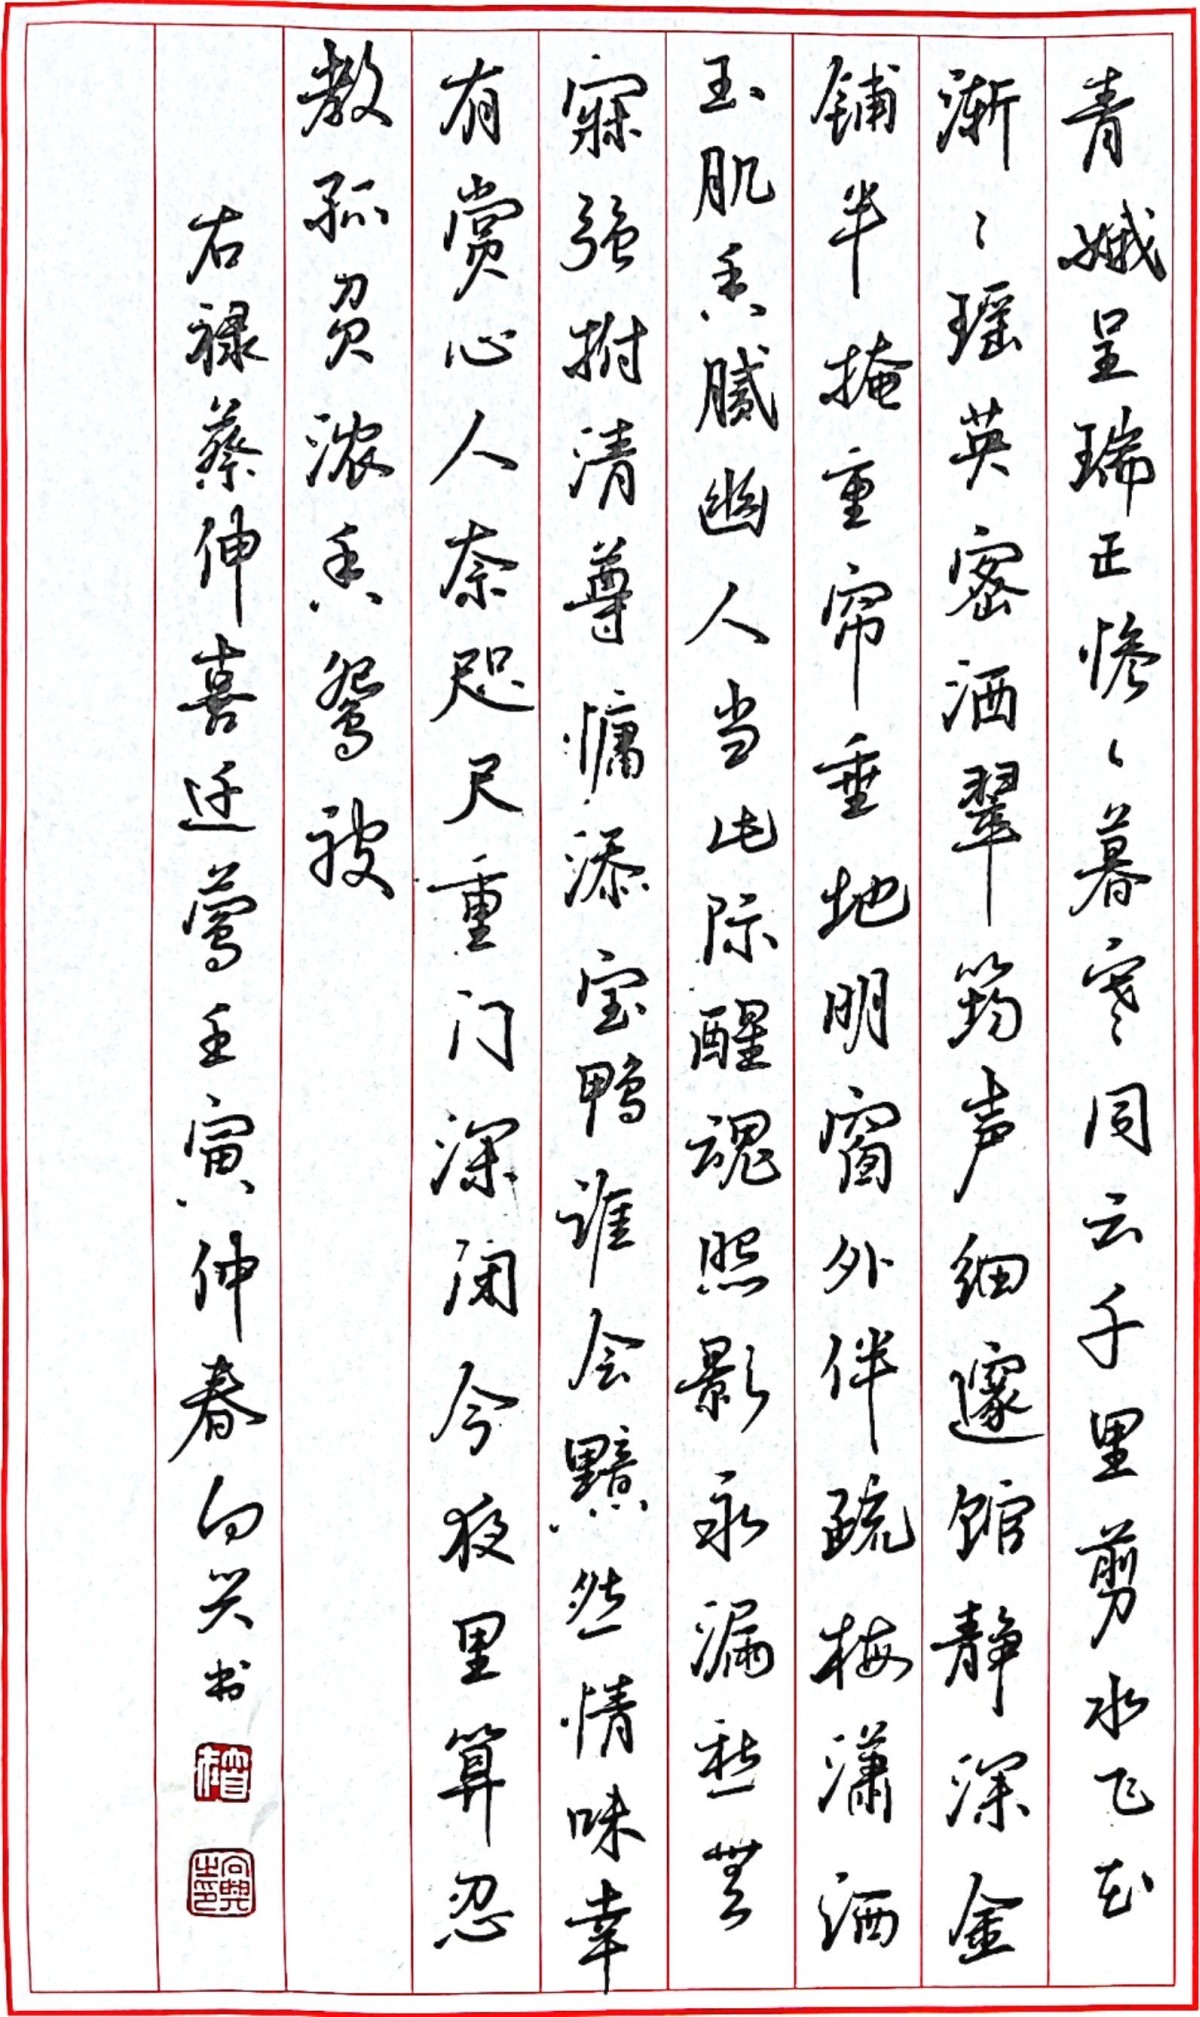 青娥呈瑞正惨〻暮寒同云千里剪水飞花
渐〻瑶英密洒翠筠声细邃馆静深金
铺半掩重帘垂地明窗外伴疏梅潇洒
玉肌香腻幽人当此际醒魂照影永漏愁无
寐强拊清尊慵添宝鸭谁会黯然情味幸
有赏心人奈咫尺重门深闭今夜里算忍
教孤负浓香鸳被
右禄蔡伸喜迁莺壬寅仲春向兴书